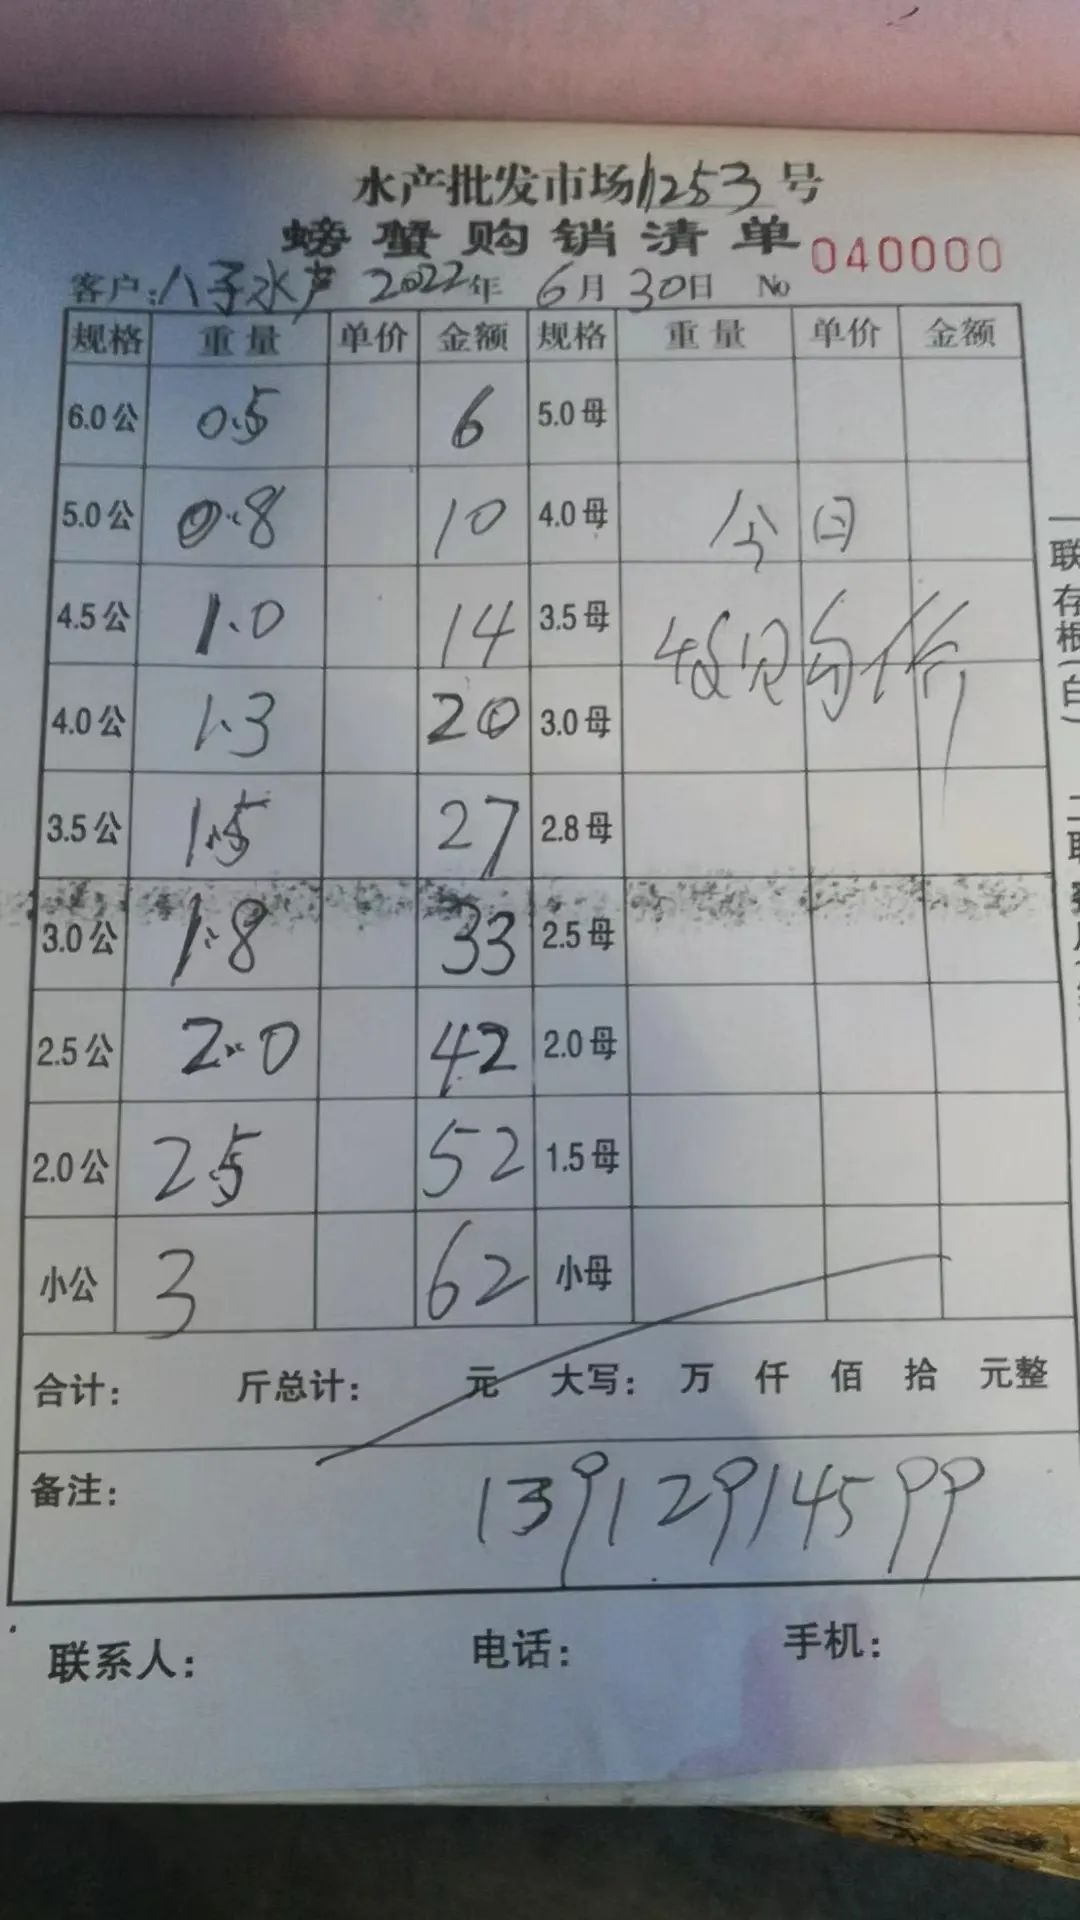 水产批发市场1253号
螃蟹购销清单 040000
客户：八子水产 2022年 6月 30日 No
规格 重量 单价 金额 规格 重量 单价 金额
6.0公 0.5 6 5.0母
5.0公 0.8 10 4.0母 今日
4.5公 1.0 14 3.5母
4.0公 1.3 20 3.0母
3.5公 1.5 27 2.8母
3.0公 1.8 33 2.5母
2.5公 2.0 42 2.0母
2.0公 2.5 52 1.5母
小公 3 62 小母
合计： 斤总计： 元 大写： 万 仟 佰 拾 元整
备注： 13912914599
联系人： 电话： 手机：
一联存根(白)
二联